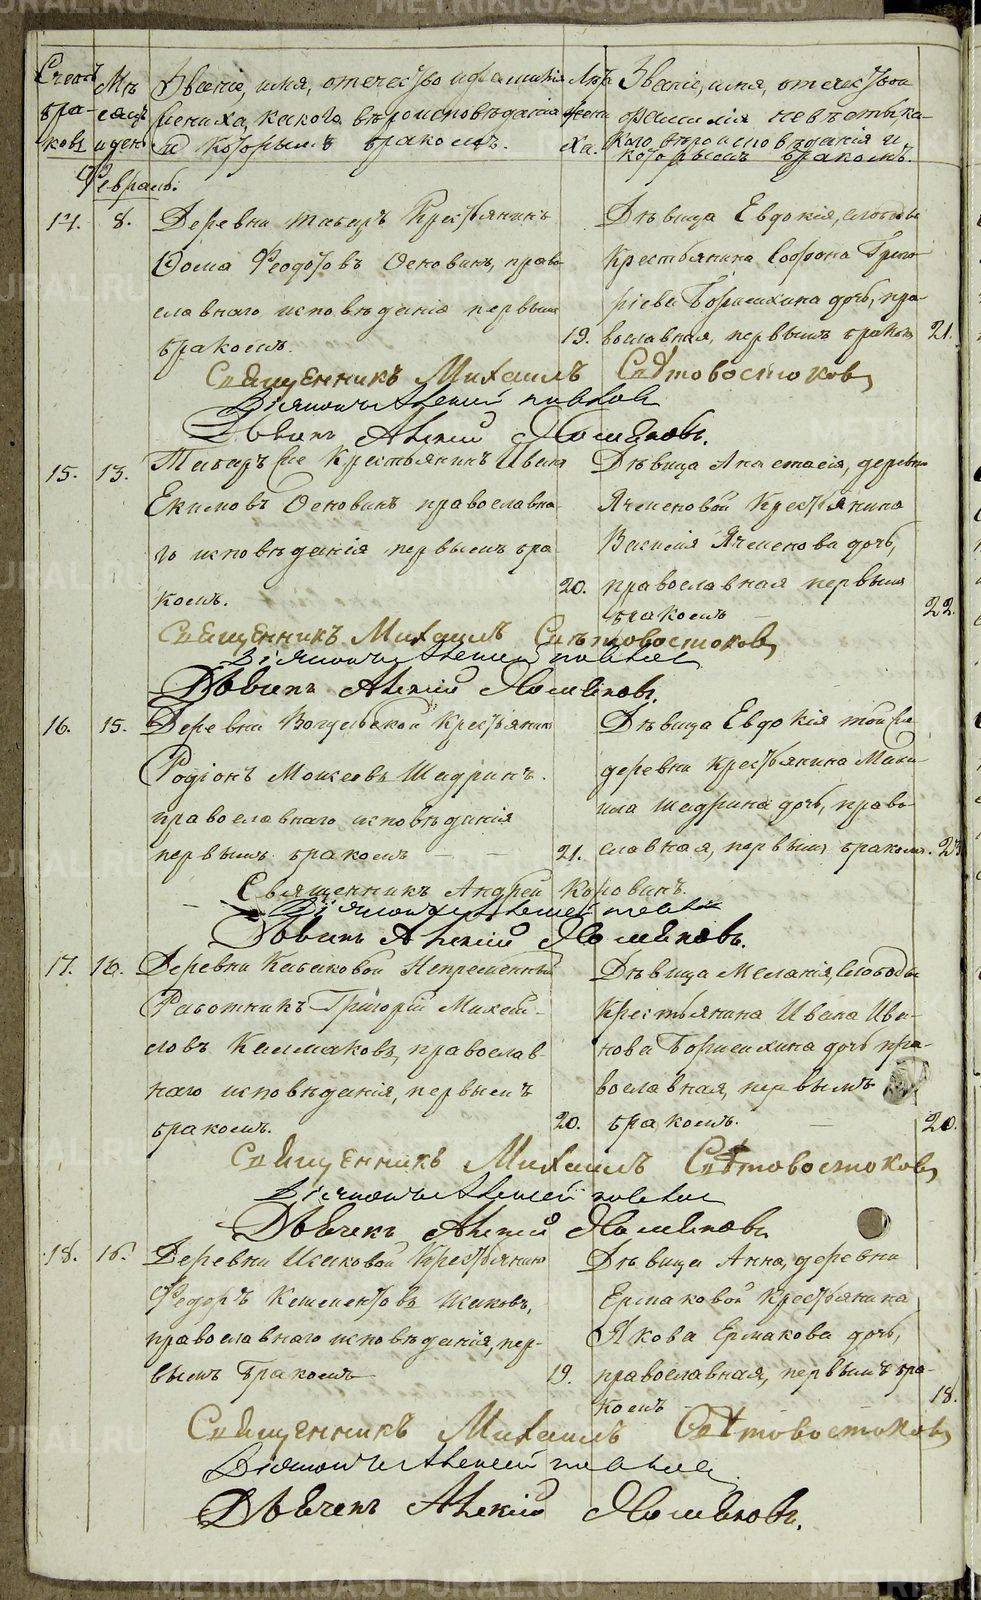 Счетъ бра-ковъ
Мѣсяцъ и день
Званіе, имя, отечество и фамилія
жениха, какого вѣроисповѣданія
и которымъ бракомъ.
Лѣта жениха.
Званіе, имя, отечество и
фамилія невѣсты, ка-
кого вѣроисповѣданія и
которымъ бракомъ.
Февраль.
14. 8. Деревни Табаръ Крестьянинъ
Фома Феодотовъ Осковинъ, право
славнаго исповѣданія первымъ
бракомъ. 19.
Дѣвица Евдокія, слободы
Крестьянина Софрона Григо
ріева Боришихина дочь, пра-
вославная, первымъ бракомъ 21.
Священникъ Михаилъ Свѣтовостоковъ
Діаконъ Алексей
Дьячекъ Алексій Хомяковъ.
15. 13. Крестьянинъ Иванъ
Екимовъ Осковинъ православна
го исповѣданія первымъ бра
комъ. 20.
Дѣвица Анастасія, деревни
Ячменевой Крестьянина
Василія Ячменева дочь,
православная первымъ
бракомъ 22.
Священникъ Михаилъ Свѣтовостоковъ
Діаконъ Алексей
Дьячекъ Алексій Хомяковъ.
16. 15. Деревни Вогульской Крестьянинъ
Родіонъ Моисеевъ Шадринъ.
православнаго исповѣданія
первымъ бракомъ 21.
Дѣвица Евдокія той же
деревни Крестьянина
Шадрина дочь, право
славная, первымъ бракомъ. 23
Священникъ Андрей Коровинъ.
Діаконъ Алексей
Дьячекъ Алексій Хомяковъ.
17. 16. Деревни Кабаковой Непременный
Работникъ Григорій Михай-
ловъ Калмаковъ, православ-
наго исповѣданія, первымъ
бракомъ. 20.
Дѣвица Меланія, Слободы
Крестьянина Ивана Ива-
нова Боришихина дочь пра-
вославная, первымъ
бракомъ. 20.
Священникъ Михаилъ Свѣтовостоковъ
Діаконъ Алексей
Дьячекъ Алексій Хомяковъ.
18. 16. Деревни Исаковой Крестьянинъ
Федоръ Исаковъ,
православнаго исповѣданія, пер-
вымъ бракомъ 19.
Дѣвица Анна, деревни
Ермаковой Крестьянина
Якова Ермакова дочь,
православная, первымъ бра-
комъ 18.
Священникъ Михаилъ Свѣтовостоковъ
Діаконъ Алексей
Дьячекъ Алексій Хомяковъ.
METRIKI.GASU-URAL.RU